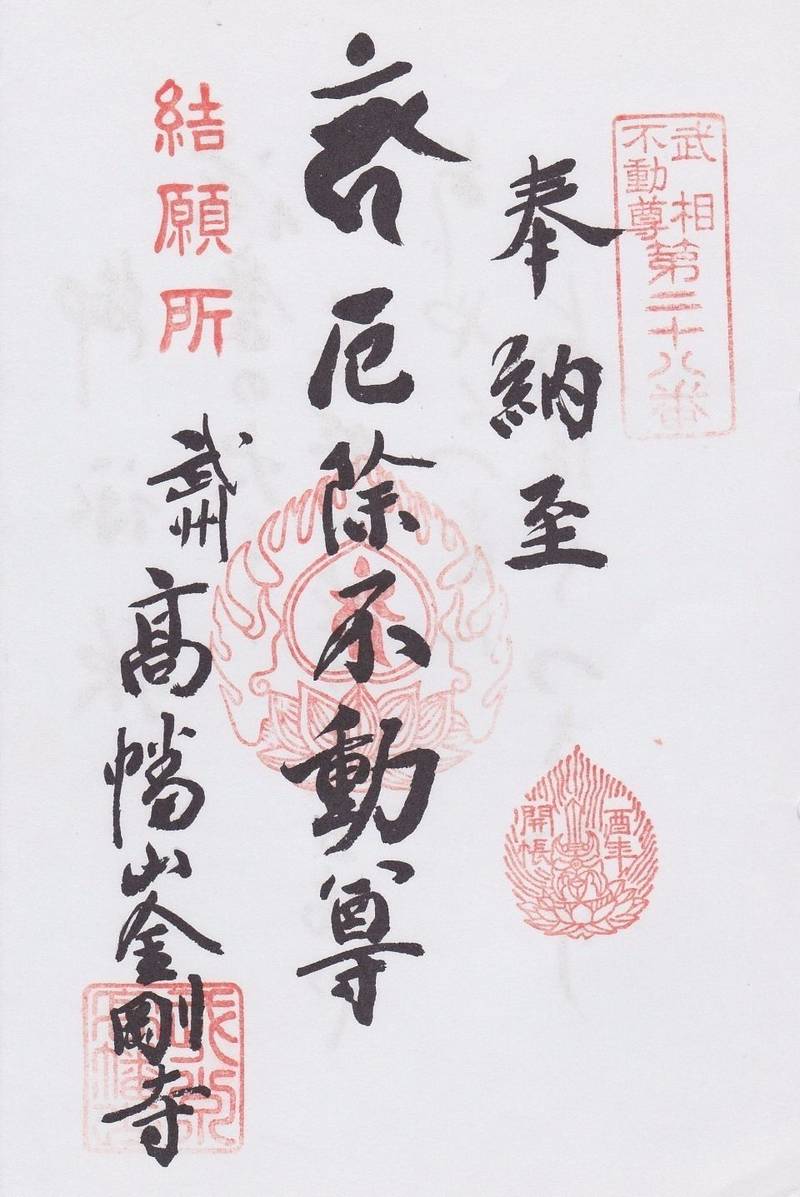 武相
不動尊
第二十八番
奉納至
酉年
開帳
厄除不動尊
結願所
武州
髙幡山金剛寺